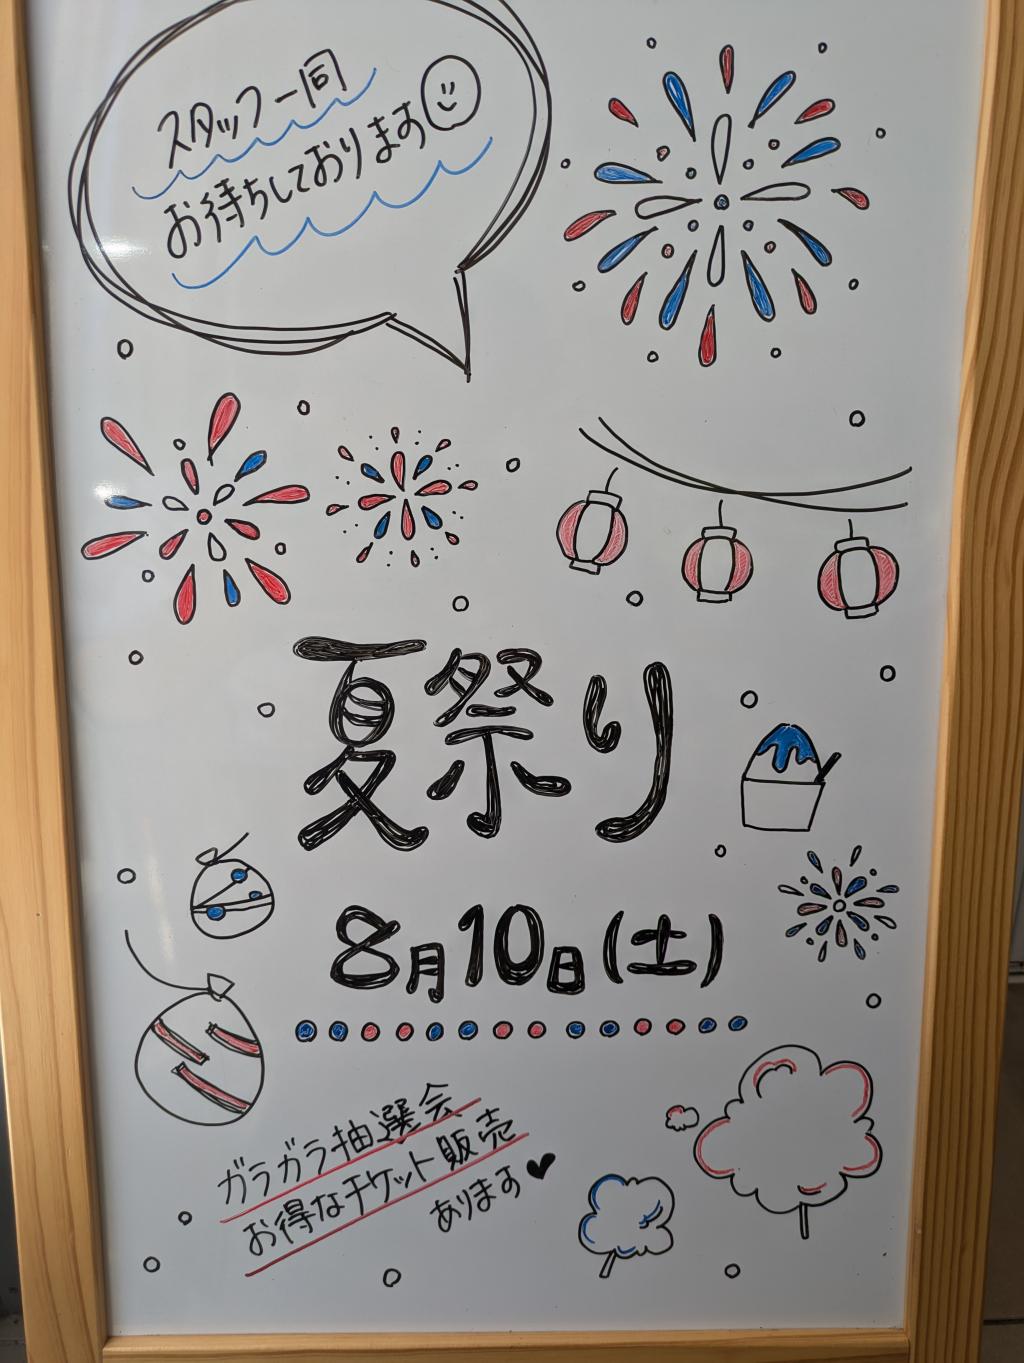 スタッフ一同
お待ちしております
夏祭り
8月10日(土)
ガラガラ抽選会
お得なチケット販売
あります